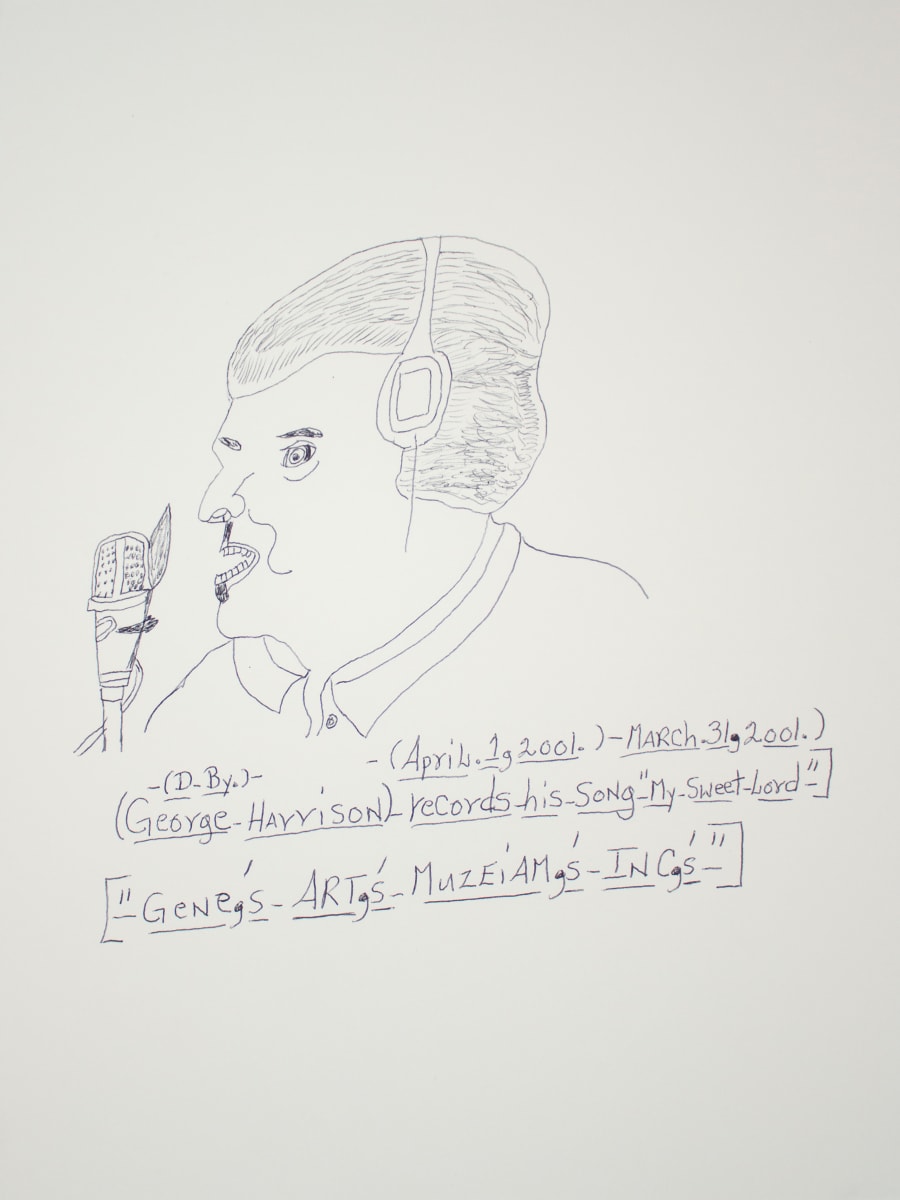 -(April.1,2001.)-MARCh.31,2001.)
-(D-By.)-
(George-HArrisoN)-records-his-SoNg-"My-Sweet-Lord-"]
["-GeNe,'s-ART,'s-MuZEiAM,'s-INC,'s-"-]